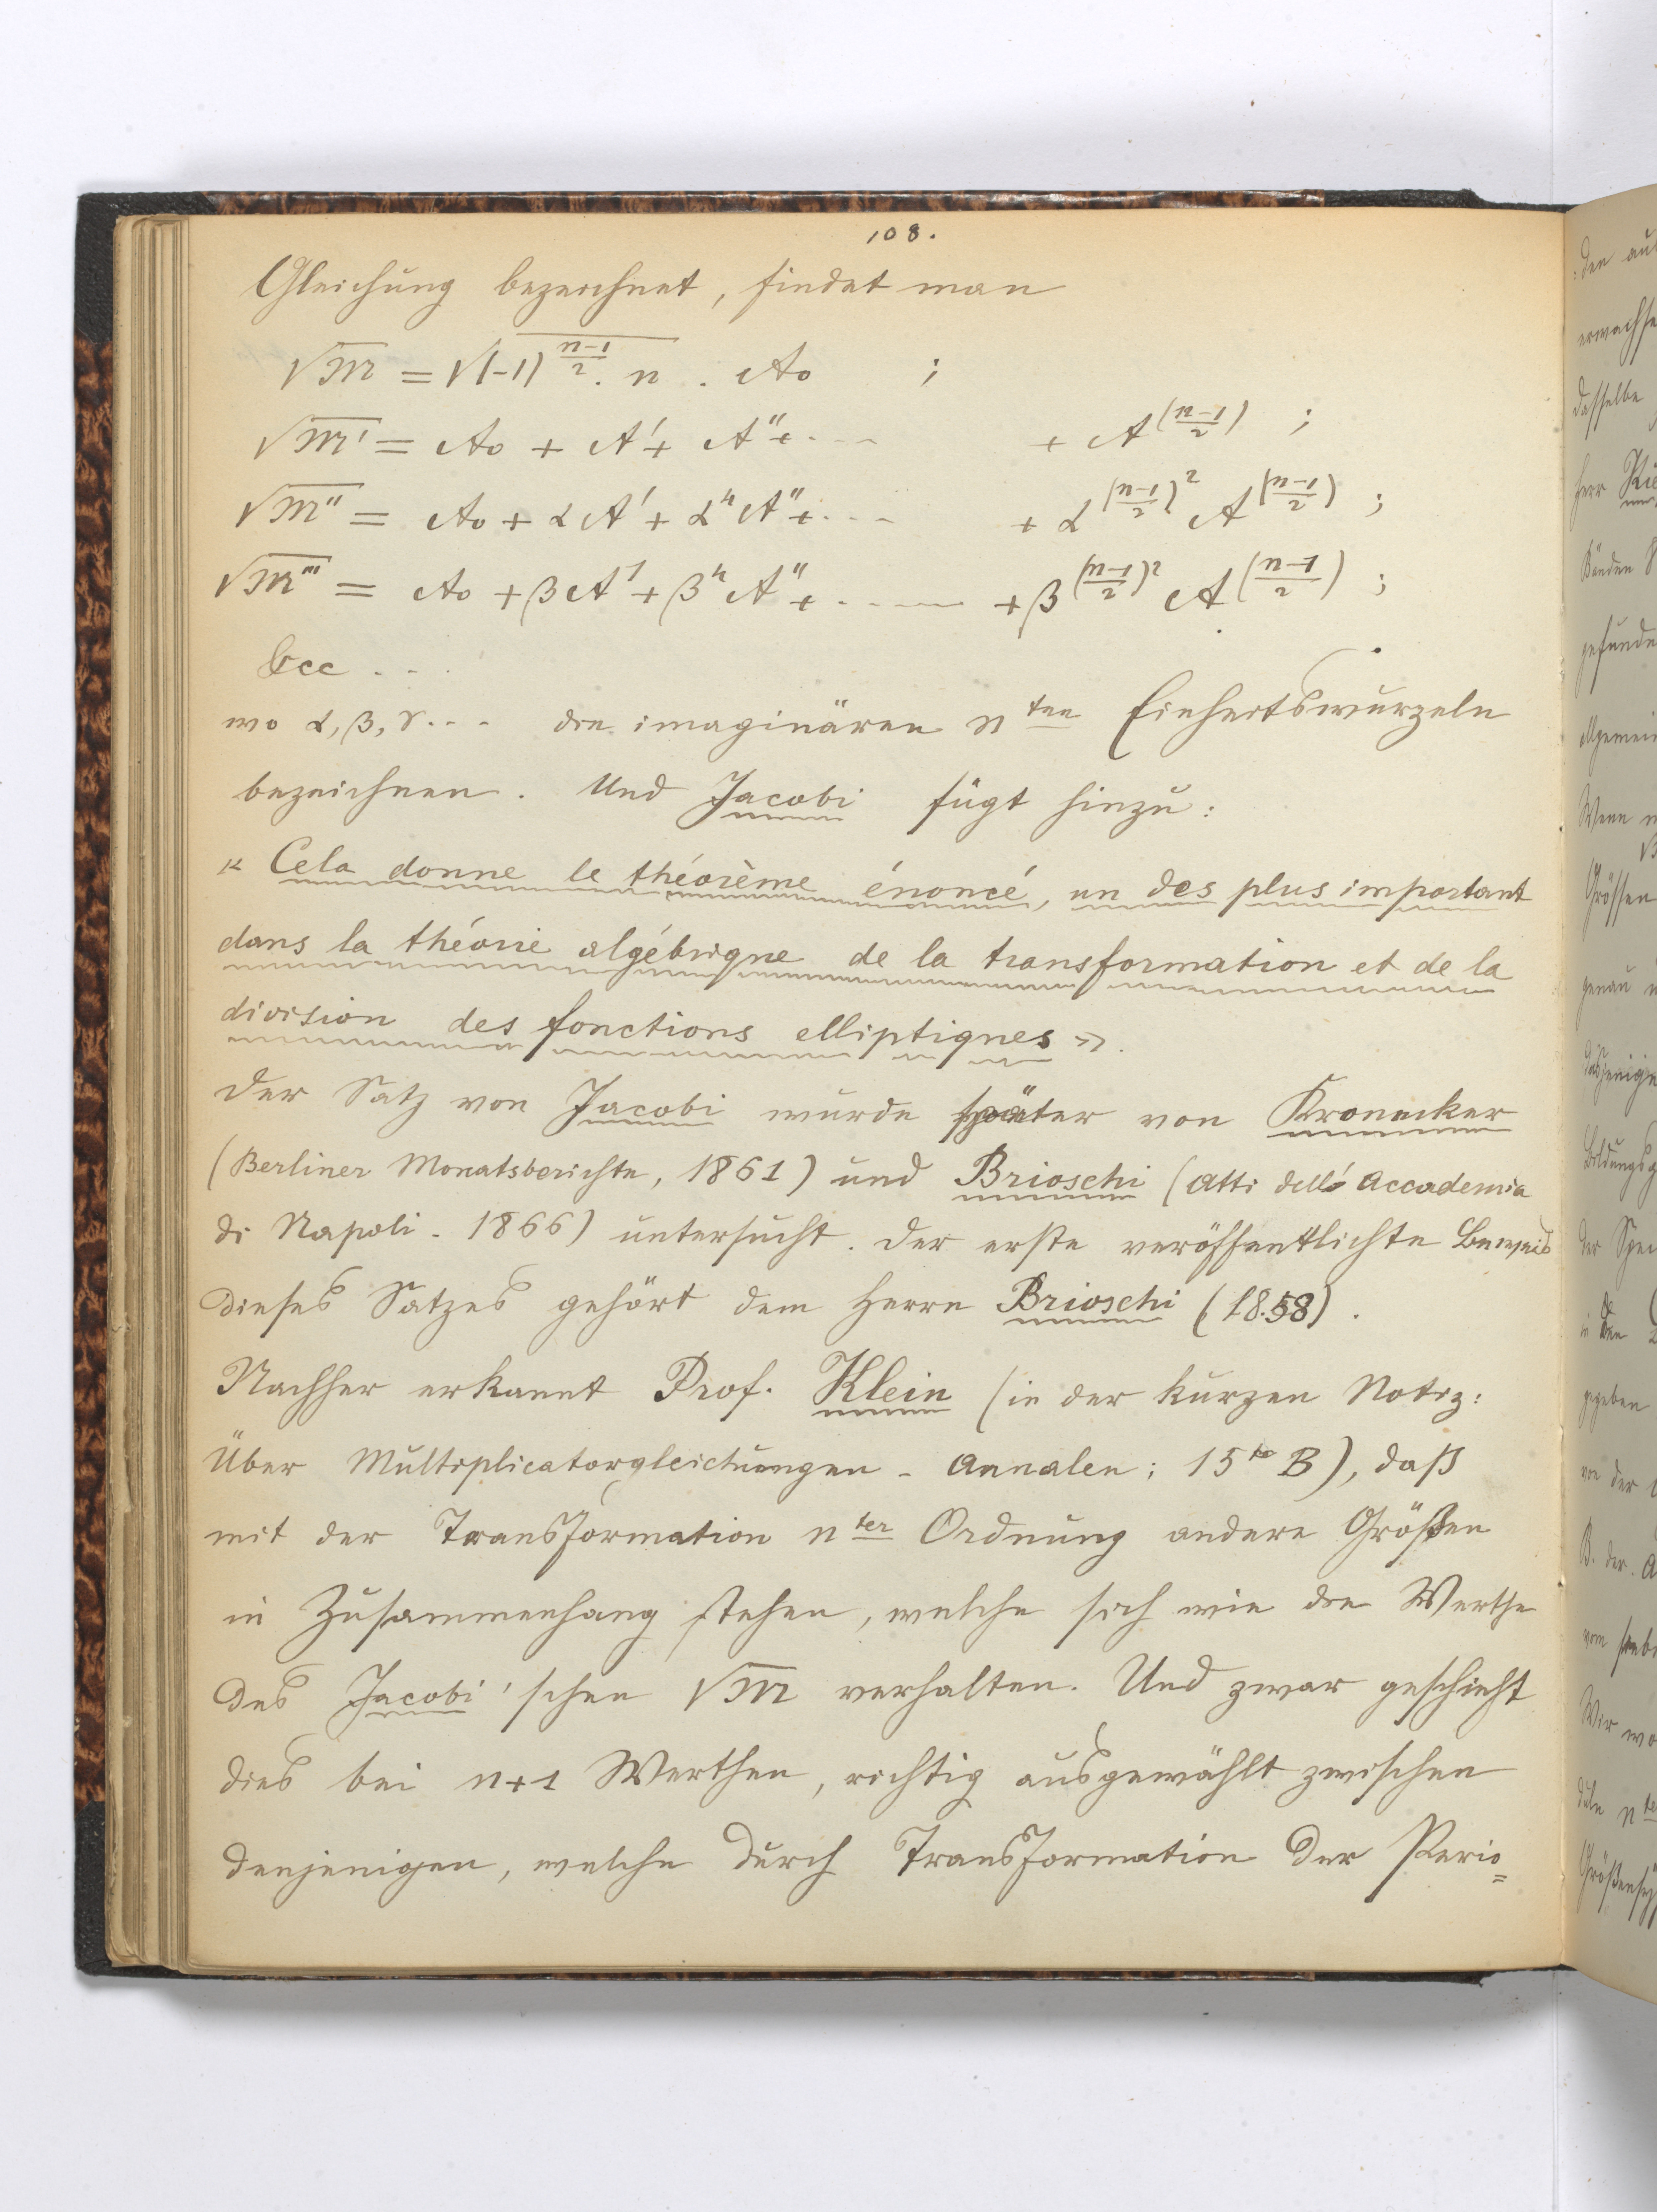 108.
Gleichung bezeichnet, findet man
√M = √((-1)^((n-1)/2) . n) . A₀ ;
√M' = A₀ + A' + A'' + .... + A^((n-1)/2) ;
√M'' = A₀ + αA' + α⁴A'' + .... + α^((n-1)/2)² A^((n-1)/2) ;
√M''' = A₀ + βA' + β⁴A'' + ..... + β^((n-1)/2)² A^((n-1)/2) ;
&cc ...
wo α, β, γ... die imaginären n^ten Einheitswurzeln
bezeichnen. Und Jacobi fügt hinzu:
« Cela donne le théorème énoncé, un des plus important
dans la théorie algébrique de la transformation et de la
division des fonctions elliptiques ».
Der Satz von Jacobi wurde später von Kronecker
(Berliner Monatsberichte, 1861) und Brioschi (Atti dell'Accademia
di Napoli - 1866) untersucht. Der erste veröffentlichte Beweis
dieses Satzes gehört dem Herrn Brioschi (1858).
Nachher erkannt Prof. Klein (in der kurzen Notiz:
Über Multiplicatorgleichungen - Annalen; 15^te B), daß
mit der Transformation n^ter Ordnung andere Größen
in Zusammenhang stehen, welche sich wie die Werthe
des Jacobi'schen √M verhalten. Und zwar geschieht
dies bei n+1 Werthen, richtig ausgewählt zwischen
denjenigen, welche durch Transformation der Perio=